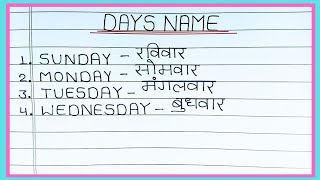 DAYS NAME
1. SUNDAY – रविवार
2. MONDAY – सोमवार
3. TUESDAY – मंगलवार
4. WEDNESDAY – बुधवार